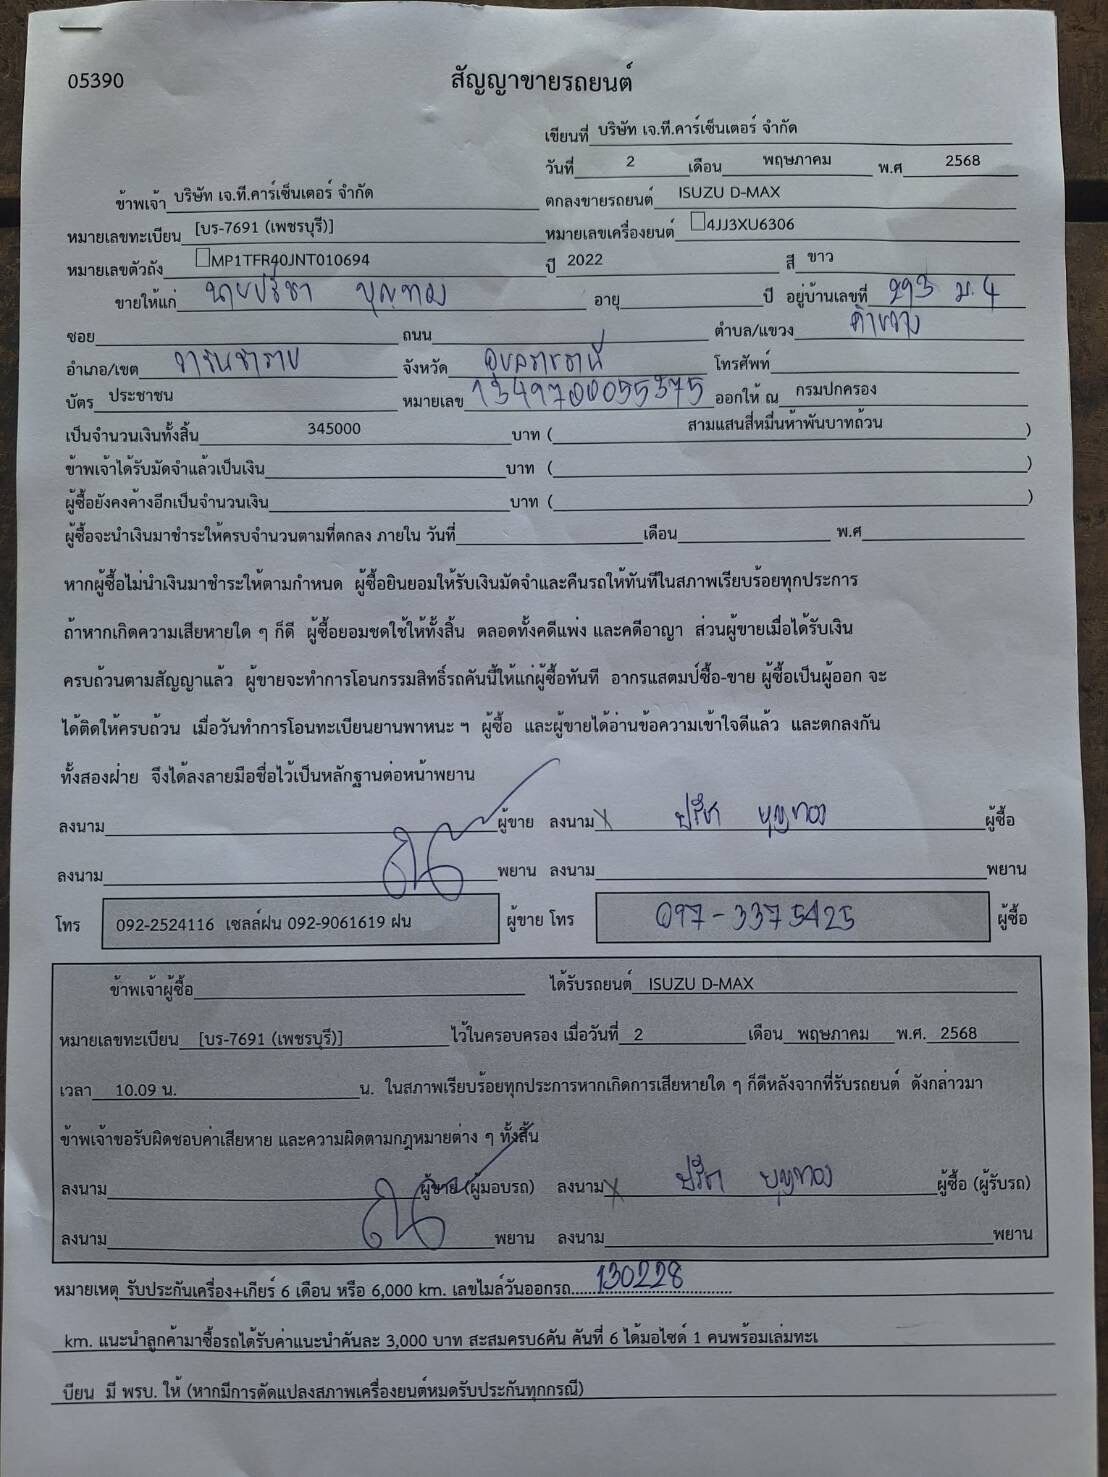 05390
สัญญาขายรถยนต์
เขียนที่ บริษัท เจ.ที.คาร์เซ็นเตอร์ จำกัด
วันที่ 2 เดือน พฤษภาคม พ.ศ 2568
ข้าพเจ้า บริษัท เจ.ที.คาร์เซ็นเตอร์ จำกัด ตกลงขายรถยนต์ ISUZU D-MAX
หมายเลขทะเบียน [บร-7691 (เพชรบุรี)] หมายเลขเครื่องยนต์ 4JJ3XU6306
หมายเลขตัวถัง MP1TFR40JNT010694 ปี 2022 สี ขาว
ขายให้แก่ นายปรีชา บุญทอง อายุ ปี อยู่บ้านเลขที่ 293 ม.4
ซอย ถนน ตำบล/แขวง คำขวาง
อำเภอ/เขต วารินชำราบ จังหวัด อุบลราชธานี โทรศัพท์
บัตร ประชาชน หมายเลข 1349700055375 ออกให้ ณ กรมปกครอง
เป็นจำนวนเงินทั้งสิ้น 345000 บาท ( สามแสนสี่หมื่นห้าพันบาทถ้วน )
ข้าพเจ้าได้รับมัดจำแล้วเป็นเงิน บาท ( )
ผู้ซื้อยังคงค้างอีกเป็นจำนวนเงิน บาท ( )
ผู้ซื้อจะนำเงินมาชำระให้ครบจำนวนตามที่ตกลง ภายใน วันที่ เดือน พ.ศ
หากผู้ซื้อไม่นำเงินมาชำระให้ตามกำหนด ผู้ซื้อยินยอมให้รับเงินมัดจำและคืนรถให้ทันทีในสภาพเรียบร้อยทุกประการ
ถ้าหากเกิดความเสียหายใด ๆ ก็ดี ผู้ซื้อยอมชดใช้ให้ทั้งสิ้น ตลอดทั้งคดีแพ่ง และคดีอาญา ส่วนผู้ขายเมื่อได้รับเงิน
ครบถ้วนตามสัญญาแล้ว ผู้ขายจะทำการโอนกรรมสิทธิ์รถคันนี้ให้แก่ผู้ซื้อทันที อากรแสตมป์ซื้อ-ขาย ผู้ซื้อเป็นผู้ออก จะ
ได้ติดให้ครบถ้วน เมื่อวันทำการโอนทะเบียนยานพาหนะ ฯ ผู้ซื้อ และผู้ขายได้อ่านข้อความเข้าใจดีแล้ว และตกลงกัน
ทั้งสองฝ่าย จึงได้ลงลายมือชื่อไว้เป็นหลักฐานต่อหน้าพยาน
ลงนาม ผู้ขาย ลงนาม x ปรีชา บุญทอง ผู้ซื้อ
ลงนาม พยาน ลงนาม พยาน
โทร 092-2524116 เซลล์ฝน 092-9061619 ฝน ผู้ขาย โทร 097-3375425 ผู้ซื้อ
ข้าพเจ้าผู้ซื้อ ได้รับรถยนต์ ISUZU D-MAX
หมายเลขทะเบียน [บร-7691 (เพชรบุรี)] ไว้ในครอบครอง เมื่อวันที่ 2 เดือน พฤษภาคม พ.ศ. 2568
เวลา 10.09 น. น. ในสภาพเรียบร้อยทุกประการหากเกิดการเสียหายใด ๆ ก็ดีหลังจากที่รับรถยนต์ ดังกล่าวมา
ข้าพเจ้าขอรับผิดชอบค่าเสียหาย และความผิดตามกฎหมายต่าง ๆ ทั้งสิ้น
ลงนาม ผู้ขาย (ผู้มอบรถ) ลงนาม x ปรีชา บุญทอง ผู้ซื้อ (ผู้รับรถ)
ลงนาม พยาน ลงนาม พยาน
หมายเหตุ รับประกันเครื่อง+เกียร์ 6 เดือน หรือ 6,000 km. เลขไมล์วันออกรถ.....130228.....
km. แนะนำลูกค้ามาซื้อรถได้รับค่าแนะนำคันละ 3,000 บาท สะสมครบ6คัน คันที่ 6 ได้มอไซด์ 1 คนพร้อมเล่มทะเ
บียน มี พรบ. ให้ (หากมีการดัดแปลงสภาพเครื่องยนต์หมดรับประกันทุกกรณี)